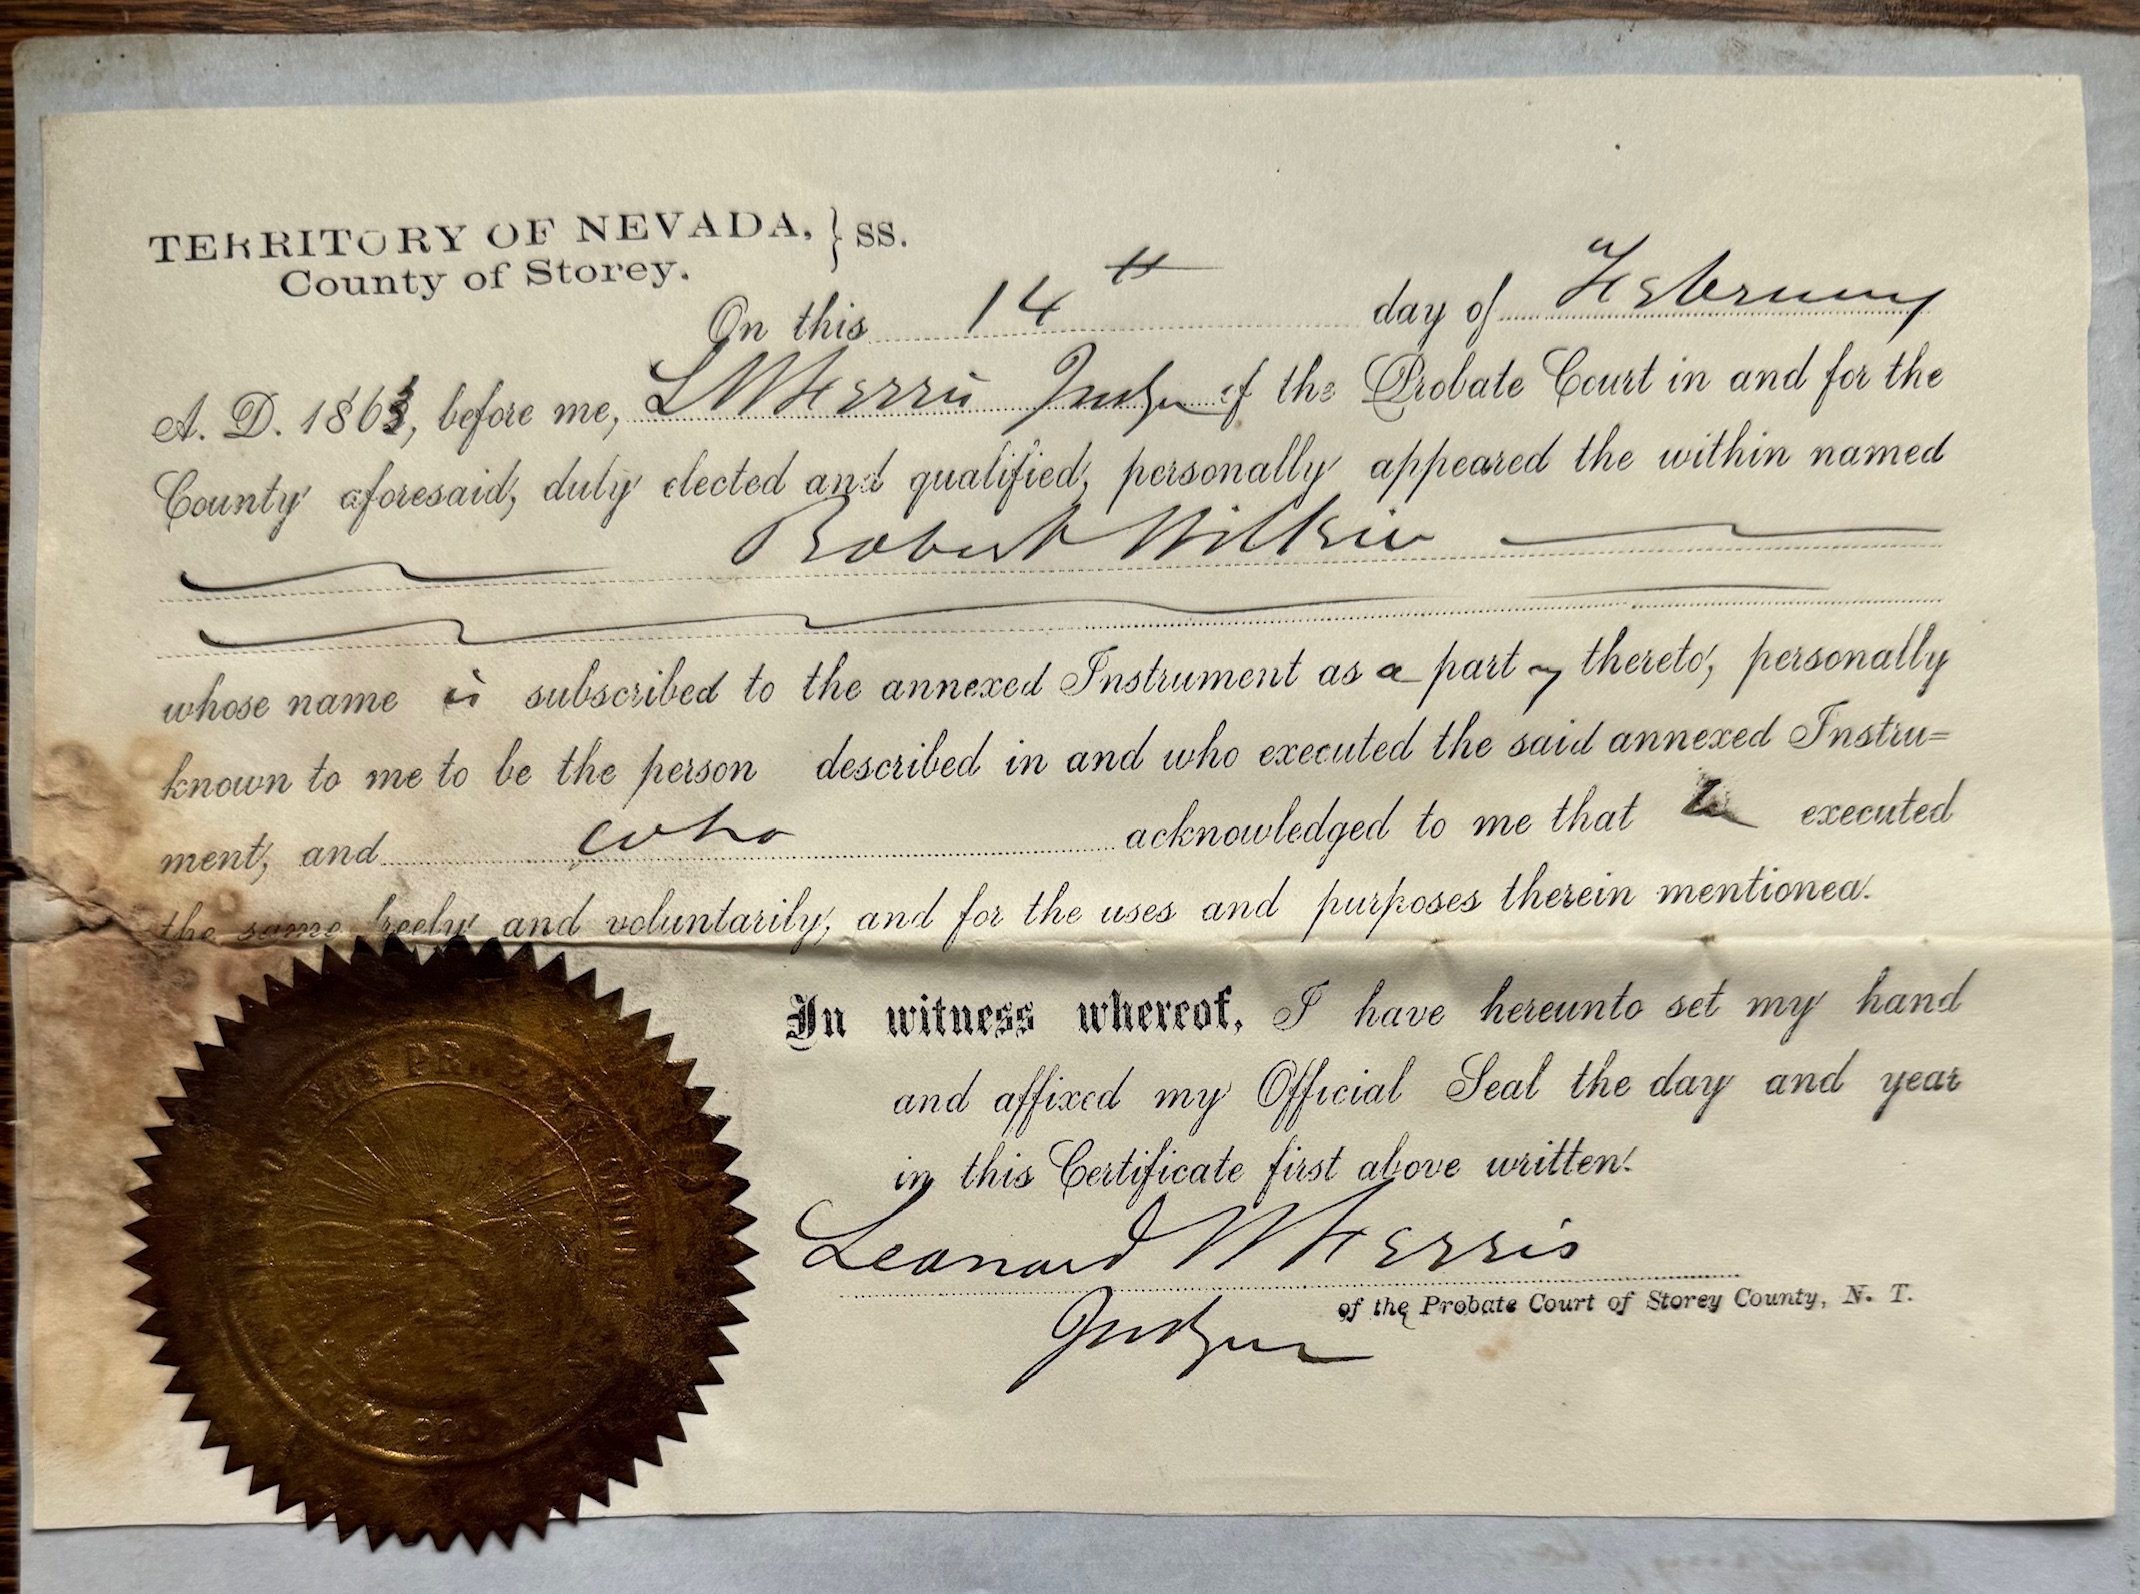 TERRITORY OF NEVADA, } SS.
County of Storey.
On this 14th day of February
A. D. 1863, before me, L W Ferris Judge of the Probate Court in and for the
County aforesaid, duly elected and qualified, personally appeared the within named
Robert Wilkin
whose name is subscribed to the annexed Instrument as a party thereto, personally
known to me to be the person described in and who executed the said annexed Instru=
ment, and who acknowledged to me that he executed
the same freely and voluntarily, and for the uses and purposes therein mentioned.
In witness whereof, I have hereunto set my hand
and affixed my Official Seal the day and year
in this Certificate first above written.
Leonard W Ferris
of the Probate Court of Storey County, N. T.
Judge